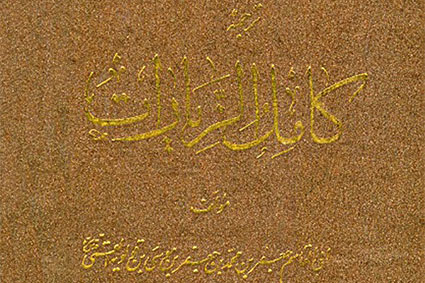 ترجمه
کامل الزیارات
مؤلف
ابی القاسم جعفر بن محمد بن جعفر بن موسی بن قولویه القمی